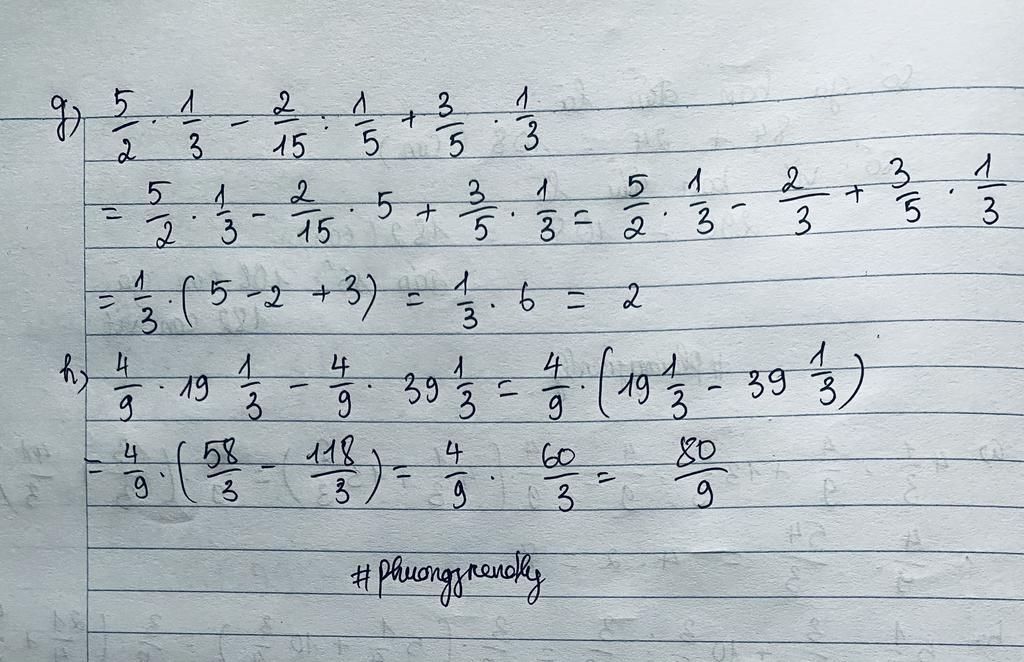 g) 5/2 . 1/3 - 2/15 : 1/5 + 3/5 . 1/3
= 5/2 . 1/3 - 2/15 . 5 + 3/5 . 1/3 = 5/2 . 1/3 - 2/3 + 3/5 . 1/3
= 1/3 . (5 - 2 + 3) = 1/3 . 6 = 2
h) 4/9 . 19 1/3 - 4/9 . 39 1/3 = 4/9 . (19 1/3 - 39 1/3)
= 4/9 . (58/3 - 118/3) = 4/9 . 60/3 = 80/9